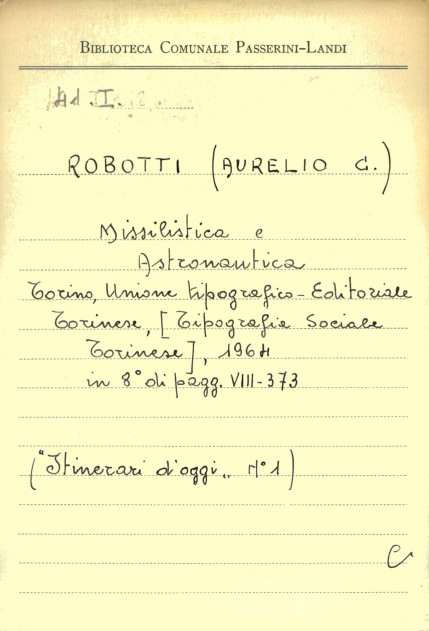 BIBLIOTECA COMUNALE PASSERINI-LANDI
41.I.
ROBOTTI (AURELIO C.)
Missilistica e
Astronautica
Torino, Unione tipografico-Editoriale
Torinese, [Tipografia Sociale
Torinese], 1964
in 8° di pagg. VIII-373
("Itinerari d'oggi„ N°1)
C